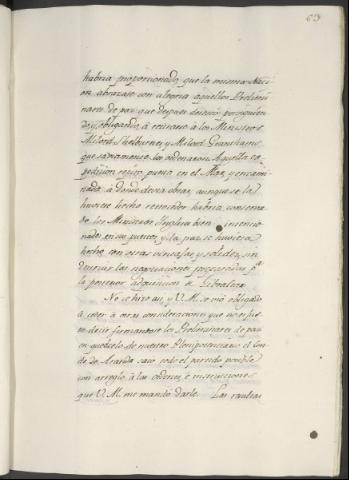 63
habria proporcionado que la misma Naci
on abrazase con alegria aquellos Prelimi
nares de paz que despues desaprobó
y obligando á retirarse a los Ministros
Milord Shelburne, y Milord Grantham
que sabiamente los ordenaron. Aquella ex
pedicion puesta en el Mar, y encami
nada á donde devia obrar, aunque se la
huviese hecho retroceder habria conserva
do los Ministros Ingleses bien intencio
nados en su puesto, y la paz se huviera
hecho con otras ventajas y solidez, sin
las negociaciones pa
la posterior adquisicion de Gibraltar.
No se hizo asi, y V. M. se vió obligado
á ceder á otras consideraciones que no es jus
to decir: firmaronse los Preliminares de paz
en que de nuestro Plenipotenciario el Con
de de Aranda sacó todo el partido posible
con arreglo á las ordenes, é instrucciones
que V. M. me mandó darle. Las resultas